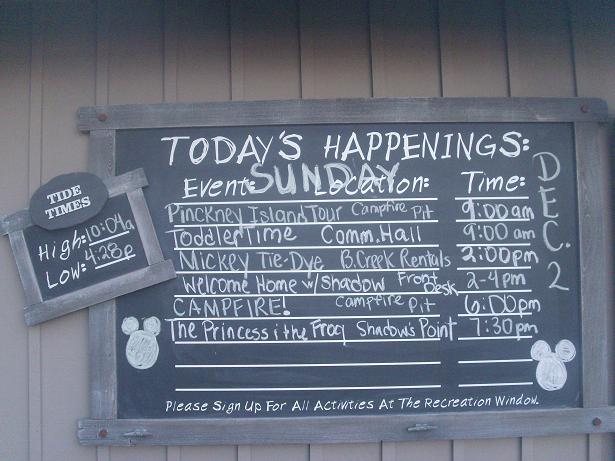 TODAY'S HAPPENINGS:
SUNDAY
DEC. 2
Event: Location: Time:
Pinckney Island Tour Campfire Pit 9:00 am
Toddler Time Comm. Hall 9:00 am
Mickey Tie-Dye B.Creek Rentals 2:00pm
Welcome Home w/Shadow Front Desk 2-4pm
CAMPFIRE! Campfire Pit 6:00pm
The Princess & the Frog Shadow's Point 7:30pm
Please Sign Up For All Activities At The Recreation Window.
TIDE
TIMES
High: 10:04a
Low: 4:28p